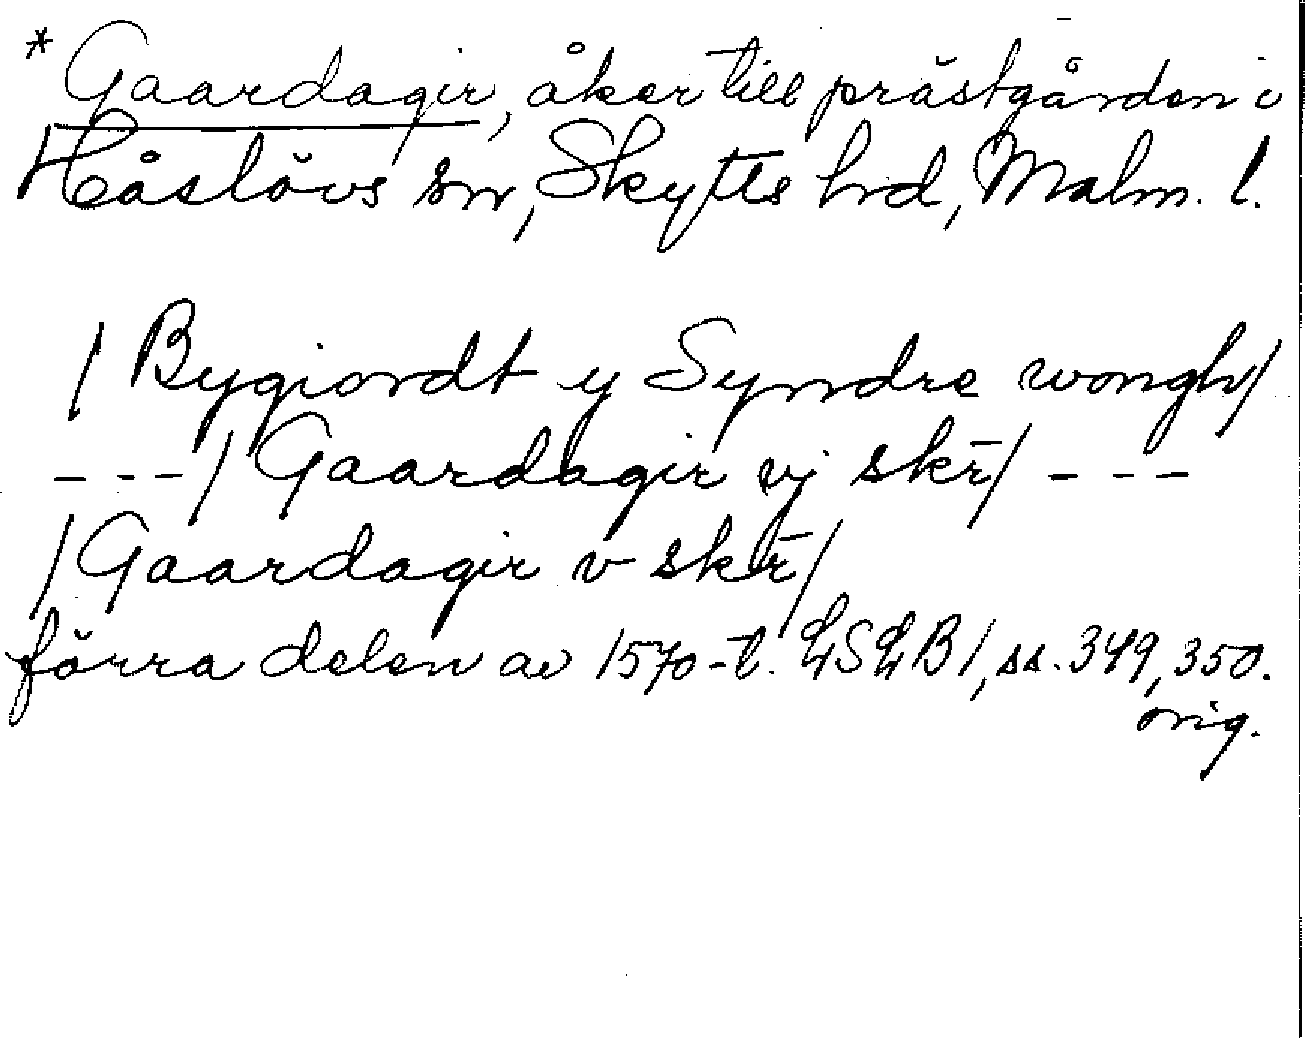 * Gaardagir, åker till prästgården i
Håslövs sn, Skytts hd, Malm. l.
/ Bygiordt y Syndre wongh/
---/ Gaardagir vj skr̄/ ---
/ Gaardagir v skr̄/
förra delen av 1570-t. LSLB 1, ss. 349, 350.
orig.